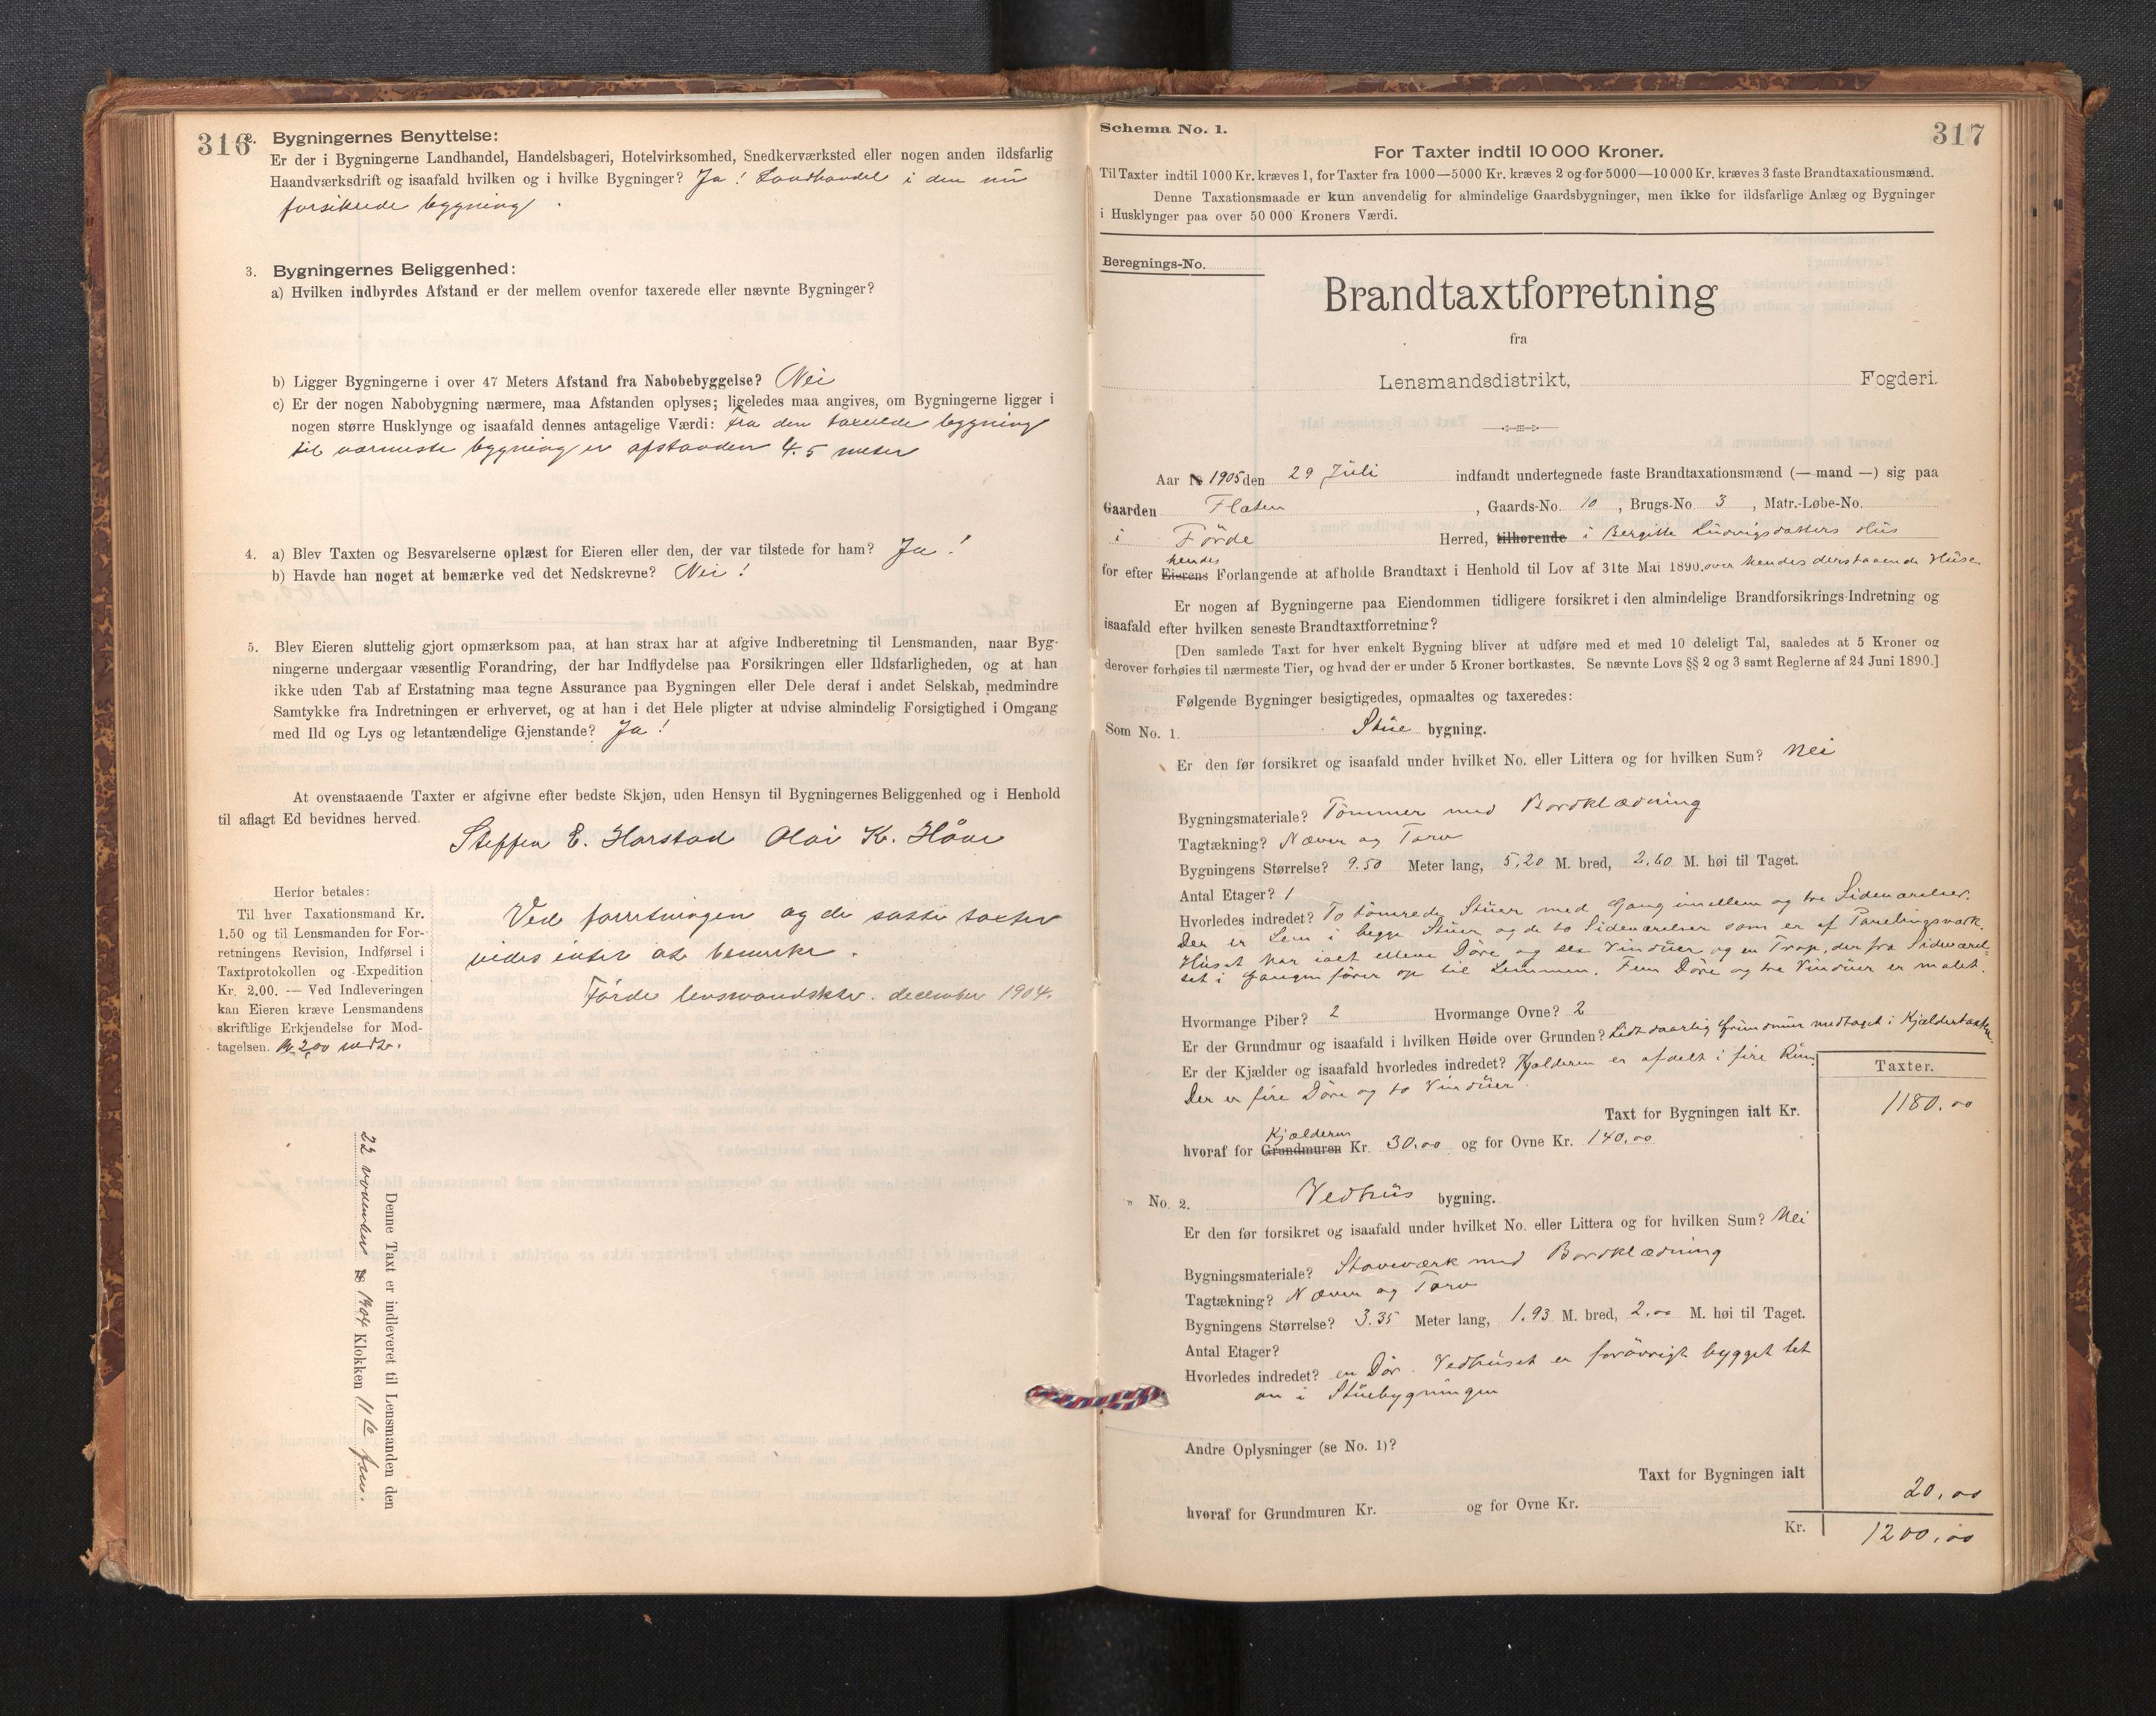 316
2. Bygningernes Benyttelse:
Er der i Bygningerne Landhandel, Handelsbageri, Hotelvirksomhed, Snedkerværksted eller nogen anden ildsfarlig
Haandværksdrift og isaafald hvilken og i hvilke Bygninger? Ja! Landhandel i den nu
forsikrede bygning.
3. Bygningernes Beliggenhed:
a) Hvilken indbyrdes Afstand er der mellem ovenfor taxerede eller nævnte Bygninger?
b) Ligger Bygningerne i over 47 Meters Afstand fra Nabobebyggelse? Nei
c) Er der nogen Nabobygning nærmere, maa Afstanden oplyses; ligeledes maa angives, om Bygningerne ligger i
nogen større Husklynge og isaafald dennes antagelige Værdi: fra den taxerede bygning
til nærmeste bygning er afstanden 4.5 meter
4. a) Blev Taxten og Besvarelserne oplæst for Eieren eller den, der var tilstede for ham? Ja!
b) Havde han noget at bemærke ved det Nedskrevne? Nei!
5. Blev Eieren sluttelig gjort opmærksom paa, at han strax har at afgive Indberetning til Lensmanden, naar Byg-
ningerne undergaar væsentlig Forandring, der har Indflydelse paa Forsikringen eller Ildsfarligheden, og at han
ikke uden Tab af Erstatning maa tegne Assurance paa Bygningen eller Dele deraf i andet Selskab, medmindre
Samtykke fra Indretningen er erhvervet, og at han i det Hele pligter at udvise almindelig Forsigtighed i Omgang
med Ild og Lys og letantændelige Gjenstande? Ja!
At ovenstaaende Taxter er afgivne efter bedste Skjøn, uden Hensyn til Bygningernes Beliggenhed og i Henhold
til aflagt Ed bevidnes herved.
Steffen E. Harstad Olai K. Håve
Herfor betales:
Til hver Taxationsmand Kr.
1.50 og til Lensmanden for For-
retningens Revision, Indførsel i
Taxtprotokollen og Expedition
Kr. 2,00. — Ved Indleveringen
kan Eieren kræve Lensmandens
skriftlige Erkjendelse for Mod-
tagelsen. Kr 2,00 mdt.
Ved forretningen og de satte taxter
vides intet at bemerke.
Førde lensmandsktr. december 1904.
Denne Taxt er indleveret til Lensmanden den
22 november 18 1904 Klokken 11 te fm.
317
Schema No. 1.
For Taxter indtil 10 000 Kroner.
Til Taxter indtil 1000 Kr. kræves 1, for Taxter fra 1000—5000 Kr. kræves 2 og for 5000—10 000 Kr. kræves 3 faste Brandtaxationsmænd.
Denne Taxationsmaade er kun anvendelig for almindelige Gaardsbygninger, men ikke for ildsfarlige Anlæg og Bygninger
i Husklynger paa over 50 000 Kroners Værdi.
Beregnings-No.
Brandtaxtforretning
fra
Lensmandsdistrikt, Fogderi.
Aar 18 1905 den 29 Juli indfandt undertegnede faste Brandtaxationsmænd (— mand —) sig paa
Gaarden Flaten, Gaards-No. 10, Brugs-No. 3, Matr.-Løbe-No.
i Förde Herred, tilhorende i Bergitte Ludvigsdatters Hus
hendes
for efter Eierens Forlangende at afholde Brandtaxt i Henhold til Lov af 31te Mai 1890. over hendes derstaaende Huse.
Er nogen af Bygningerne paa Eiendommen tidligere forsikret i den almindelige Brandforsikrings-Indretning og
isaafald efter hvilken seneste Brandtaxtforretning?
[Den samlede Taxt for hver enkelt Bygning bliver at udføre med et med 10 deleligt Tal, saaledes at 5 Kroner og
derover forhøies til nærmeste Tier, og hvad der er under 5 Kroner bortkastes. Se nævnte Lovs §§ 2 og 3 samt Reglerne af 24 Juni 1890.]
Følgende Bygninger besigtigedes, opmaaltes og taxeredes:
Som No. 1. Stue bygning.
Er den før forsikret og isaafald under hvilket No. eller Littera og for hvilken Sum? Nei
Bygningsmateriale? Tømmer med Bordklædning
Tagtækning? Næver og Torv
Bygningens Størrelse? 9.50 Meter lang, 5,20 M. bred, 2,60 M. høi til Taget.
Antal Etager? 1
Hvorledes indredet? To tömrede Stuer med Gang imellem og tre Sideværelser.
Der er Lem i begge Stuer og de to Sideværelser som er af Panelingsværk.
Huset har ialt elleve Döre og sex Vinduer og en Trap, der fra Sideværel-
set i Gangen förer op til Lemmen. Fem Döre og tre Vinduer er malet.
Hvormange Piber? 2 Hvormange Ovne? 2
Er der Grundmur og isaafald i hvilken Høide over Grunden? Lidt daarlig Grundmur medtaget i Kjældertaxten.
Er der Kjælder og isaafald hvorledes indredet? Kjælderen er afdelt i fire Rum.
Der er fire Döre og to Vinduer.
Taxter.
Taxt for Bygningen ialt Kr. 1180.00
Kjælderen
hvoraf for Grundmuren Kr. 30.00 og for Ovne Kr. 140.00
" No. 2. Vedhus bygning.
Er den før forsikret og isaafald under hvilket No. eller Littera og for hvilken Sum? Nei
Bygningsmateriale? Staveværk med Bordklædning
Tagtækning? Næver og Torv
Bygningens Størrelse? 3.35 Meter lang, 1.93 M. bred, 2.00 M. høi til Taget.
Antal Etager?
Hvorledes indredet? en Dör. Vedhuset er forövrigt bygget tet
an i Stuebygningen
Andre Oplysninger (se No. 1)?
Taxt for Bygningen ialt 20,00
hvoraf for Grundmuren Kr. og for Ovne Kr.
Kr. 1200,00